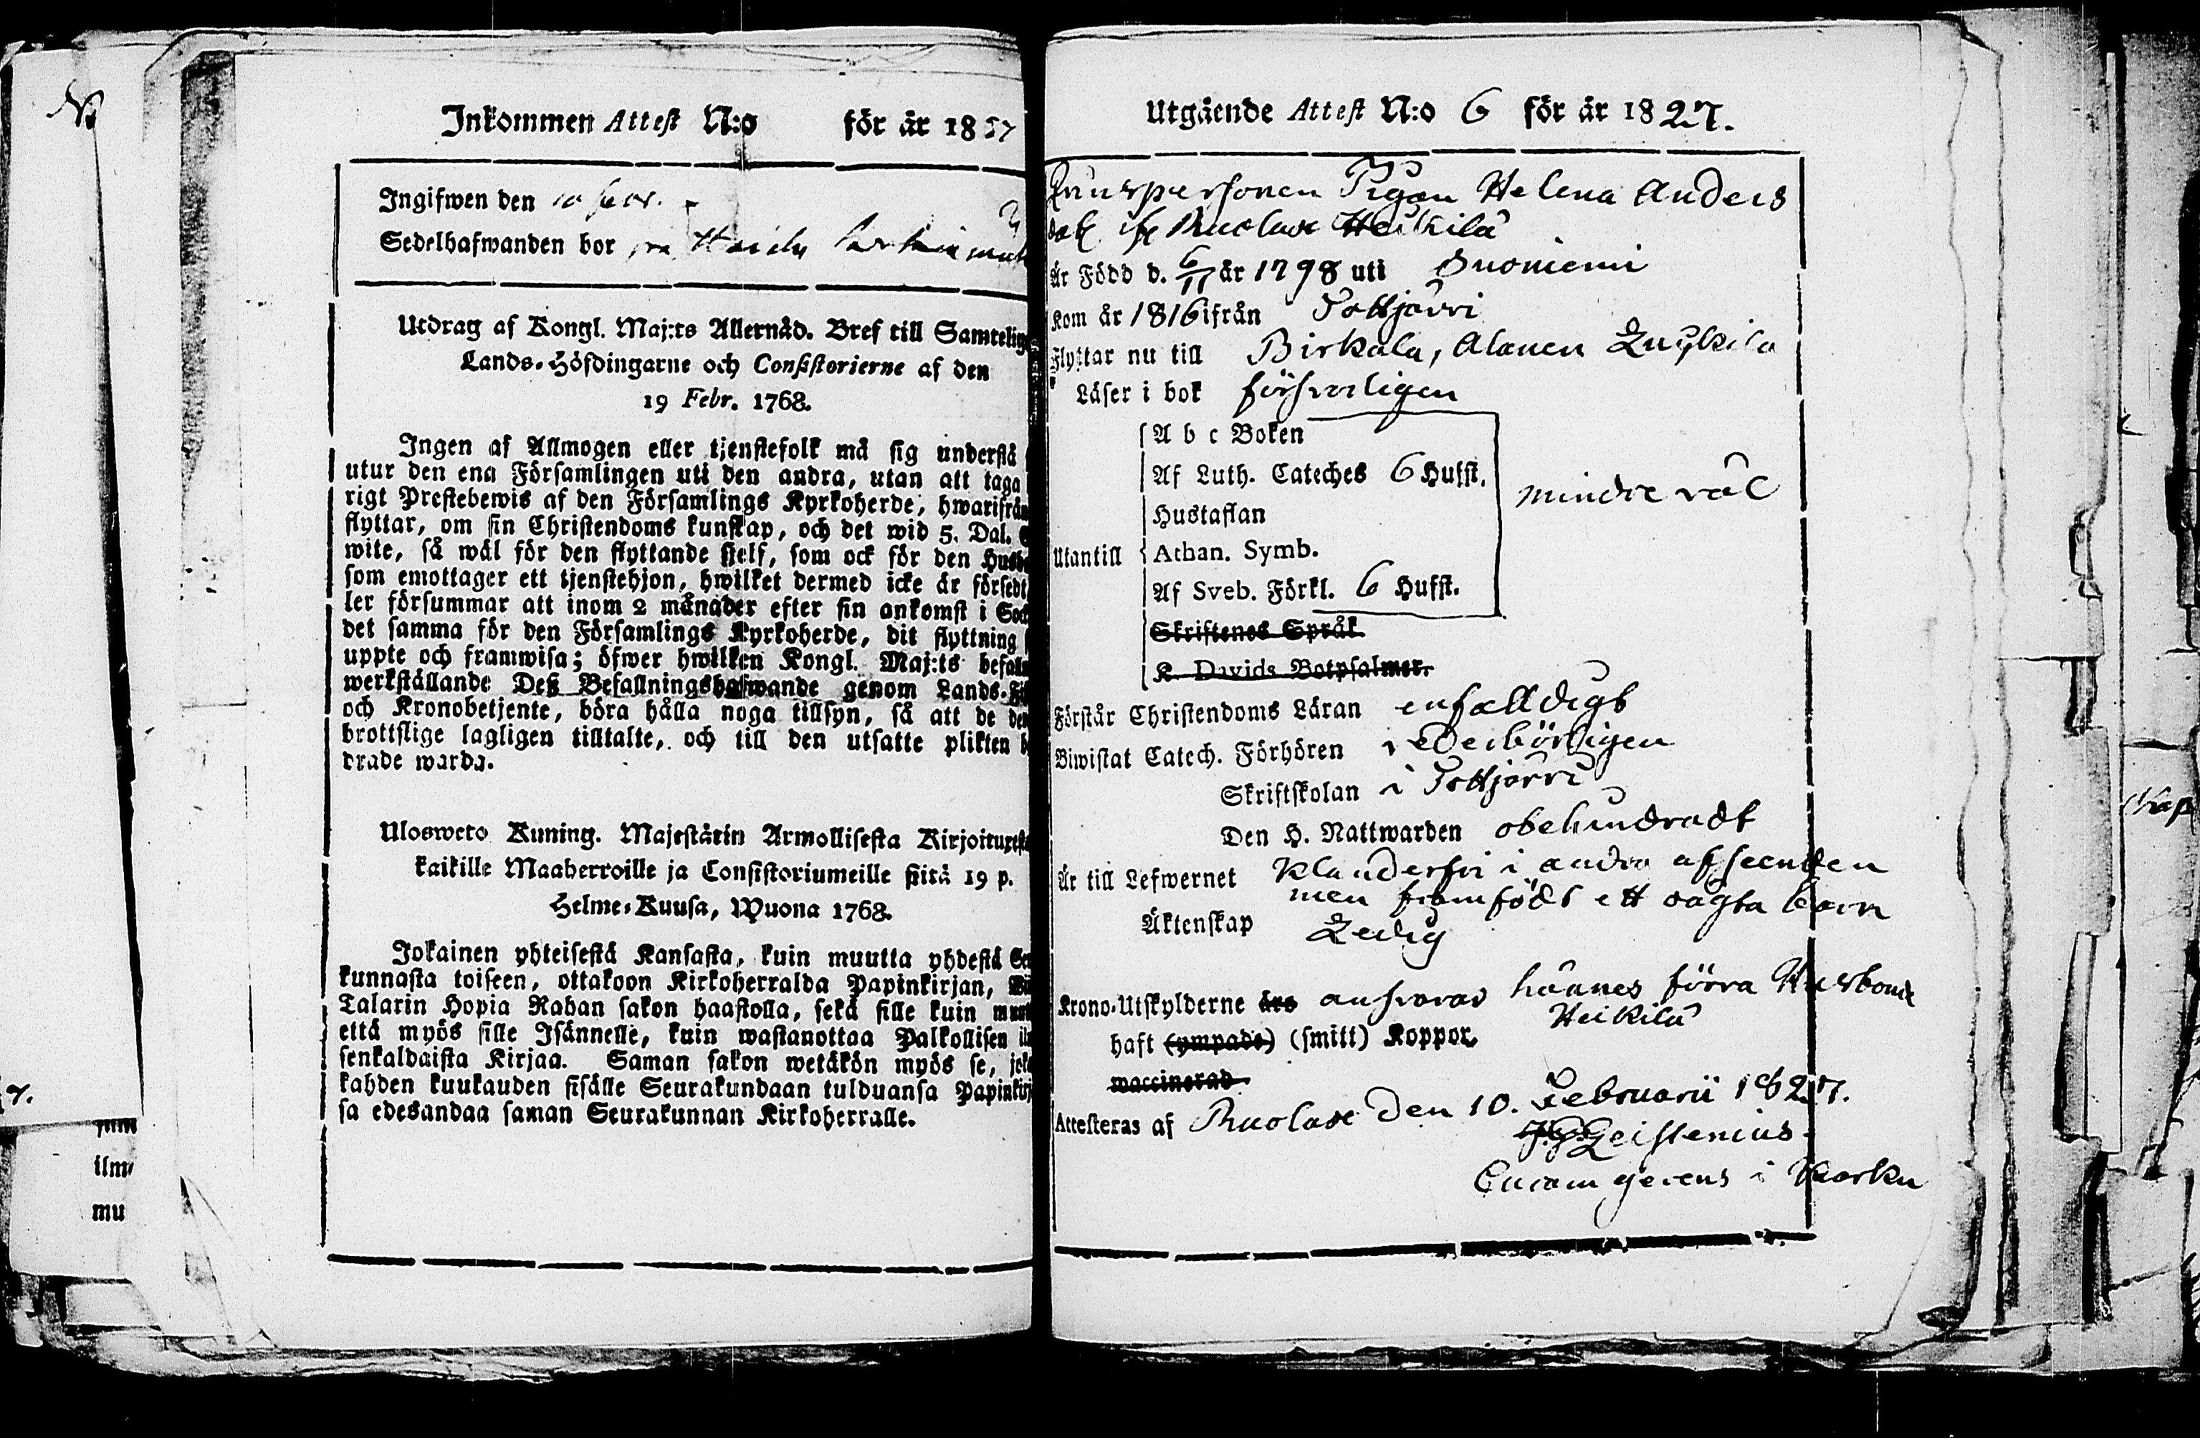 Inkommen Attest N:o för år 18
Ingifwen den 10
Sedelhafwanden bor
Utdrag af Kongl. Maj:ts Allernåd. Bref till Samtelig
Lands-Höfdingarne och Consistorierne af den
19 Febr. 1768.
Ingen af Allmogen eller tjenstefolk må sig understå
utur den ena Församlingen uti den andra, utan att taga
rigt Prestebewis af den Församlings Kyrkoherde, hwarifrån
flyttar, om sin Christendoms kunskap, och det wid 5. Dal.
wite, så wäl för den flyttande sjelf, som ock för den Husbo
som emottager ett tjenstehjon, hwilket dermed icke är försedt
ler försummar att inom 2 månader efter sin ankomst i Sock
det samma för den Församlings Kyrkoherde, dit flyttning
uppte och framwisa; öfwer hwilken Kongl. Maj:ts befaln
werkställande Deß Befallningshafwande genom Lands-Fi
och Kronobetjente, böra hålla noga tillsyn, så att de der
brottslige lagligen tilltalte, och till den utsatte plikten b
drade warda.
Ulosweto Kuning. Majestätin Armollisesta Kirjoituxesta
kaikille Maaherroille ja Consistoriumeille siitä 19 p.
Helme-Kuusa, Wuona 1768.
Jokainen yhteisestä Kansasta, kuin muutta yhdestä Seu
kunnasta toiseen, ottakoon Kirkoherralda Papinkirjan,
Talarin Hopia Rahan sakon haastolla, sekä sille kuin muut
että myös sille Isännelle, kuin wastanottaa Palkollisen il
senkaldaista Kirjaa. Saman sakon wetäkön myös se, jok
kahden kuukauden sisälle Seurakundaan tulduansa Papinkirj
sa edesandaa saman Seurakunnan Kirkoherralle.
Utgående Attest N:o 6 för år 1827.
Qvinspersonen Pigan Helena Anders
dotr ifr Ruolax Heikkilä
Är Född d. 6/11 år 1798 uti Suoniemi
Kom år 1816 ifrån Tottjärvi
Flyttar nu till Birkala, Alanen
Läser i bok försvarligen
A b c Boken
Af Luth. Cateches 6 Hufst.
mindre väl
Hustaflan
Utantill Athan. Symb.
Af Sveb. Förkl. 6 Hufst.
Skriftenes Språk
K. Davids Botpsalmer.
Förstår Christendoms Läran enfalldigt
Biwistat Catech. Förhören vederbörligen
Skriftskolan i Tottjärvi
Den H. Nattwarden obehindradt
Är till Lefwernet klanderfri i andra afseenden
men framfödt ett oägta barn
Äktenskap Ledig
Krono-Utskylderne äro ansvaras hännes förra Husbonde
Heikilä
haft (ympade) (smitt) Koppor.
waccinerad.
Attesteras af Ruolax den 10. Februarii 1827.
Geistenius.
Curam gerens i Karku